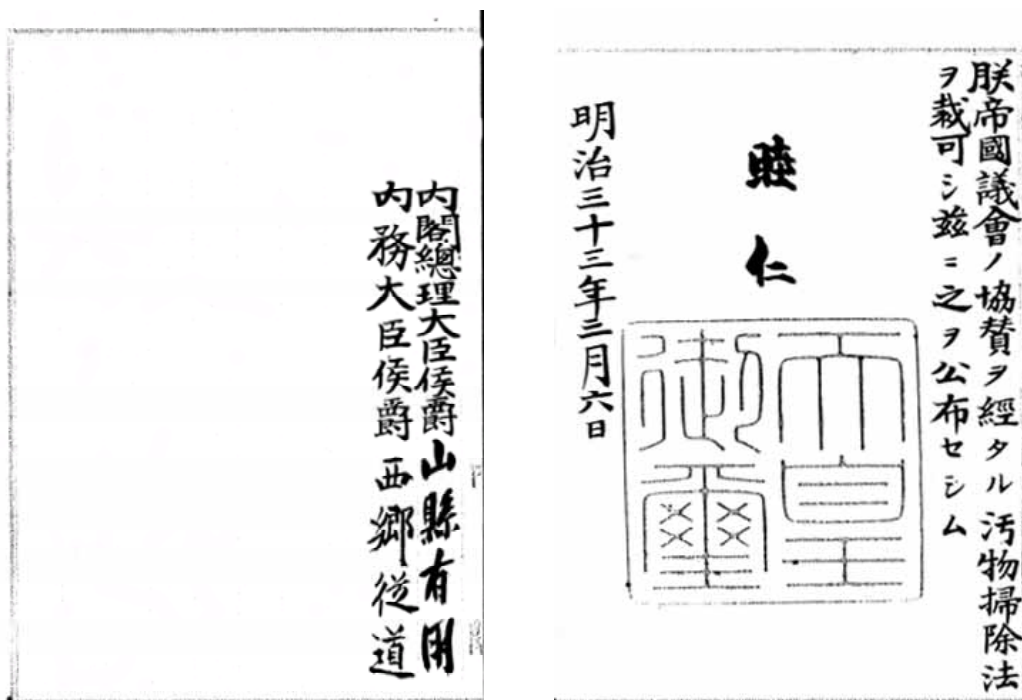 朕帝國議會ノ協賛ヲ經タル汚物掃除法
ヲ裁可シ茲ニ之ヲ公布セシム
睦仁
天皇
御璽
明治三十三年三月六日
内閣總理大臣侯爵山縣有朋
内務大臣侯爵西郷従道